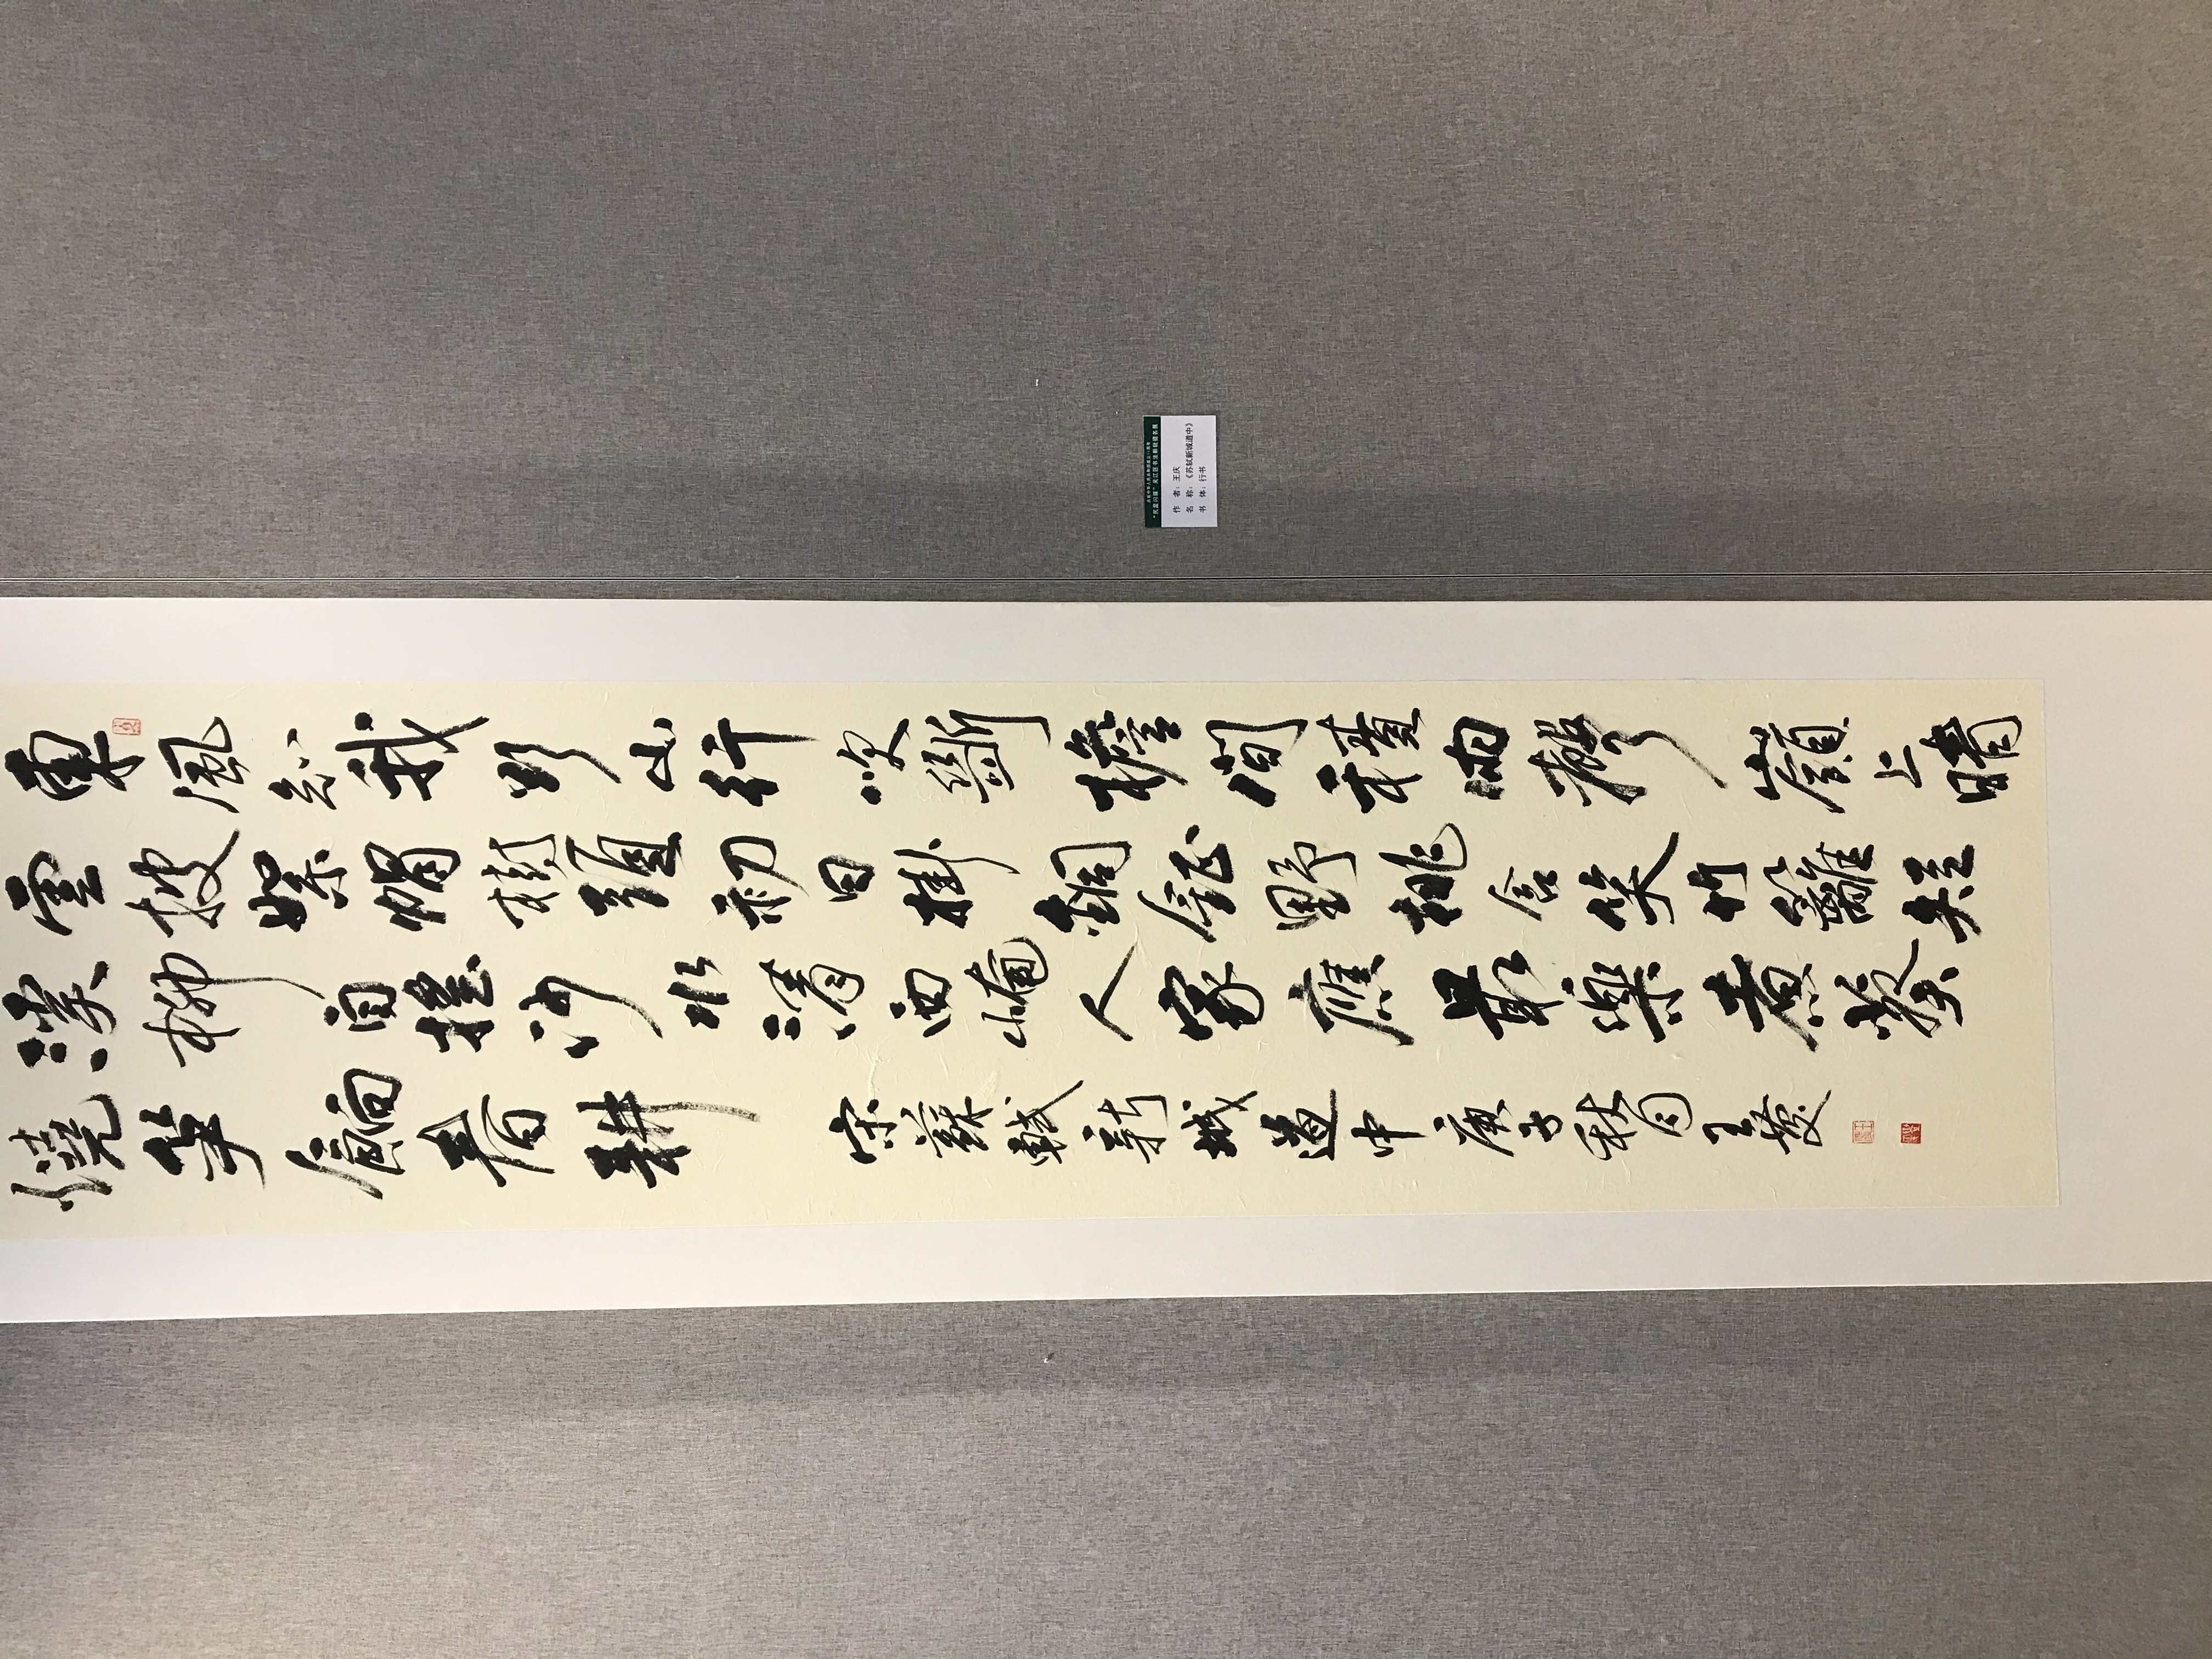 東風知我欲山行吹斷檐間積雨聲嶺上晴
雲披絮帽樹頭初日掛銅鉦野桃含笑竹籬短
溪柳自搖沙水清西崦人家應最樂煮葵
燒筍餉春耕 宋蘇軾新城道中 庚子秋月王慶
作 者：王庆
名 称：《苏轼新城道中》
书 体：行书